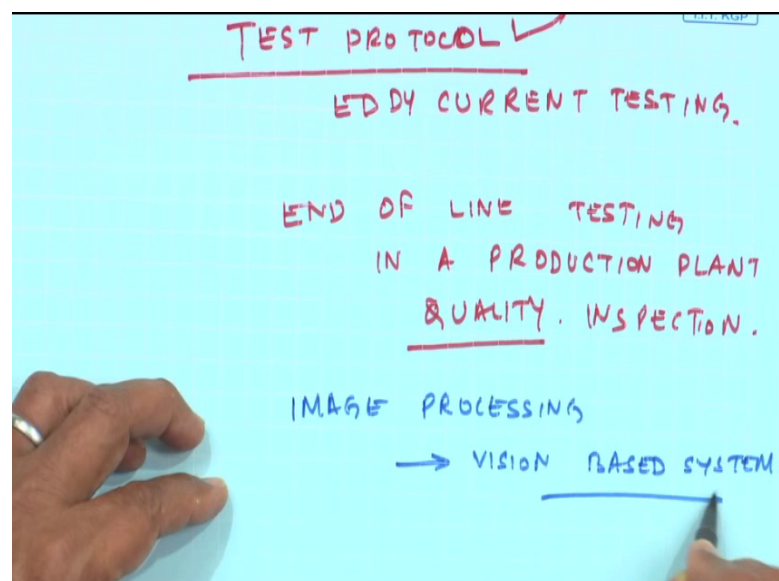 I.I.T. KGP
TEST PROTOCOL
EDDY CURRENT TESTING.
END OF LINE TESTING
IN A PRODUCTION PLANT
QUALITY. INSPECTION.
IMAGE PROCESSING
→ VISION BASED SYSTEM